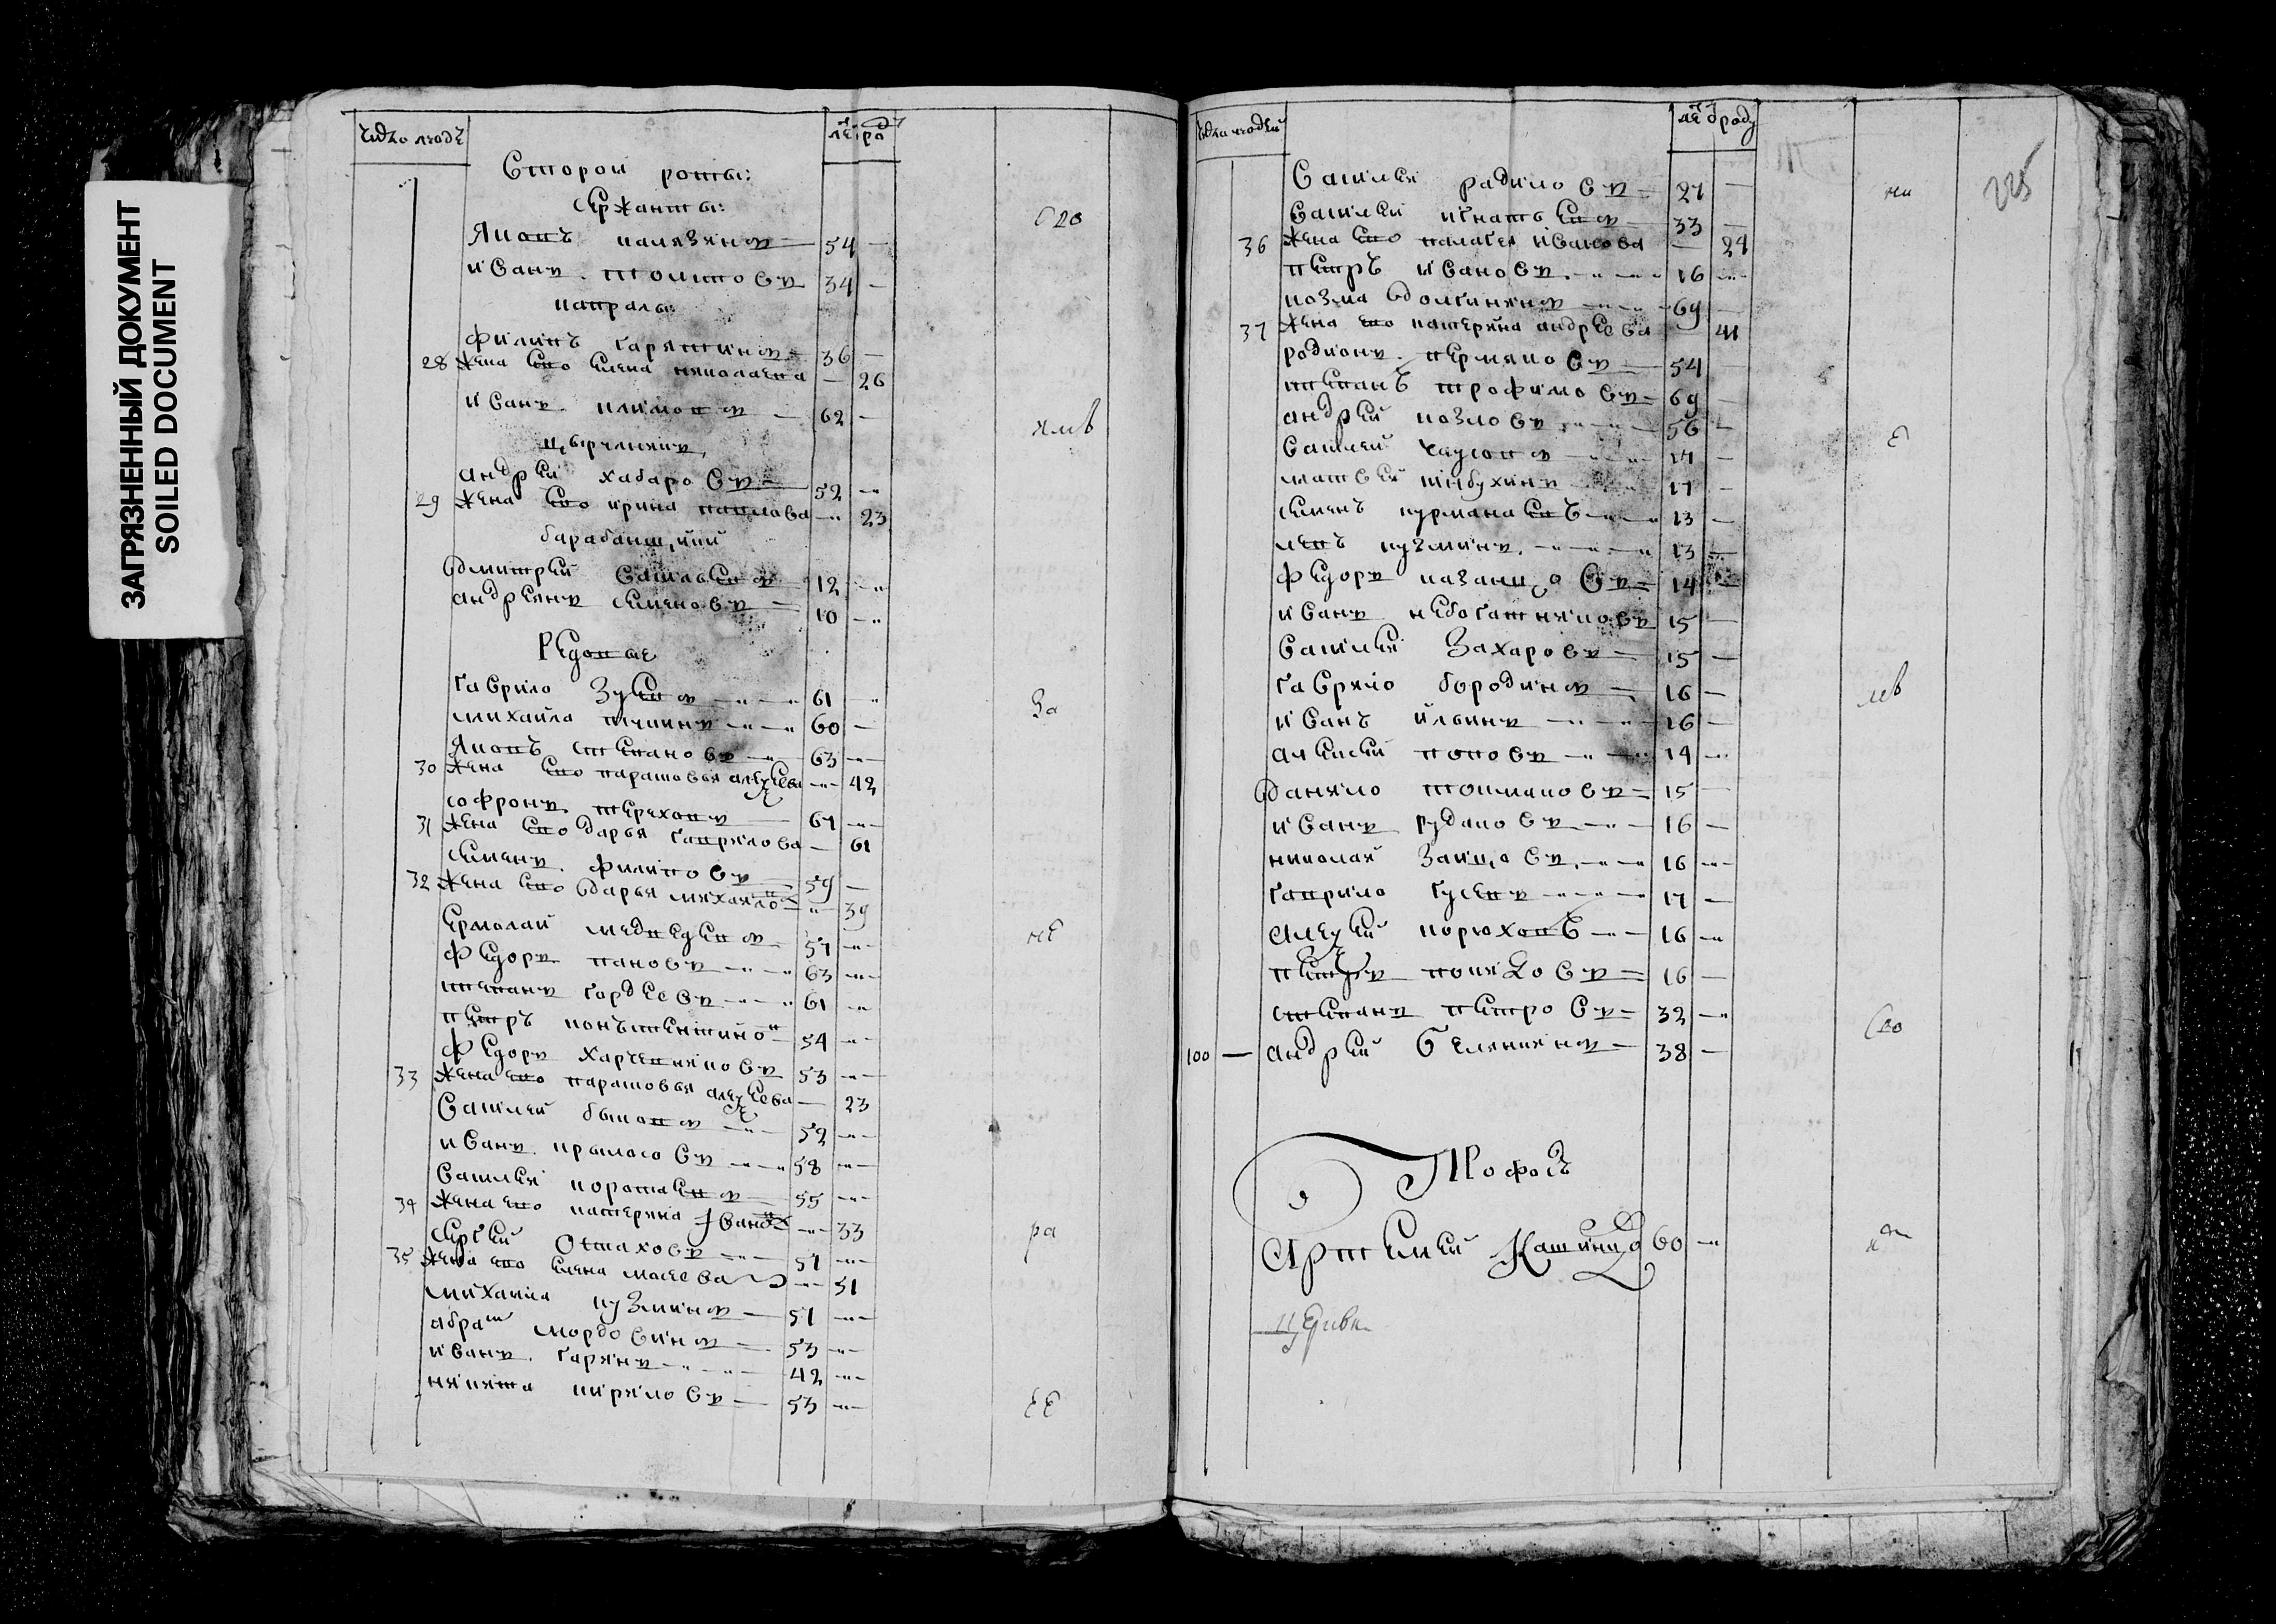 ЗАГРЯЗНЕННЫЙ ДОКУМЕНТ
SOILED DOCUMENT
число людѣ
лѣ ѿ ро
Второй роты:
сержанты:
Яковъ 54
иванъ толстовъ 34
капралы
филипъ гаряинъ 36
28 жена ево елена николаева 26
иванъ климовъ 62
цырульникъ
андрей хабаровъ 52
29 жена ево ирина павлова 23
барабанщики
дмитрей васильевъ 12
андреянъ семеновъ 10
Редовые
гаврило зуевъ 61
михайла 60
Яковъ степановъ 63
30 жена ево парасковья алексеева 42
софронъ тереховъ 67
31 жена ево дарья гаврилова 61
семенъ филиповъ 59
32 жена ево дарья михаило 39
ермолай медведевъ 57
федоръ пановъ 63
степанъ гордеевъ 61
петръ конъстентино 54
федоръ харчевниковъ 53
33 жена ево парасковья алексеева 23
василей быковъ 52
иванъ крыласовъ 58
василей коротаевъ 55
34 жена ево катерина ивано 33
сергей остаховъ 57
35 жена ево елена мосеева 51
михайла кузминъ 51
абрам мордовинъ 53
иванъ гаринъ 42
никита кириловъ 53
число людей
лѣ ѿ роду
225
василей радиловъ 27
василей игнатьевъ 33
36 жена ево палагея иванова 24
петръ ивановъ 16
козма долгининъ 69
37 жена ево катерина андреева 41
родионъ пермяковъ 54
степанъ трофимовъ 69
андрей козловъ 56
василей чаусовъ 14
матвей шибухинъ 17
семенъ курманаевъ 13
левъ кузминъ 13
федоръ казанцовъ 14
иванъ небогатиковъ 15
василей захаровъ 15
гаврило бородинъ 16
иванъ ильинъ 16
алексей поповъ 14
данило толмаковъ 15
иванъ рудаковъ 16
николай зайцовъ 16
гаврило гусевъ 17
алексей корюховъ 16
петръ 16
степанъ петровъ 32
100 андрей беляниинъ 38
Профосъ
Артемей Кашинцо 60